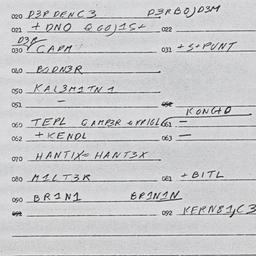 020 D3P DENC3 D3RBO)D3M
021 + DNO 2 GO)1S+ 022
D3P
030 CAPM 031 +S+PUNT
040 BODN3R
050 KAL3M1TN1
051 -
KONG+O
060 TEPL GAMP3R 061 -
062 +KENDL 063 -
070 HANTIX= HANT3X
080 M1LT3R 081 +BITL
090 BR1N1 BR1N1N
092 KERNS1,C3